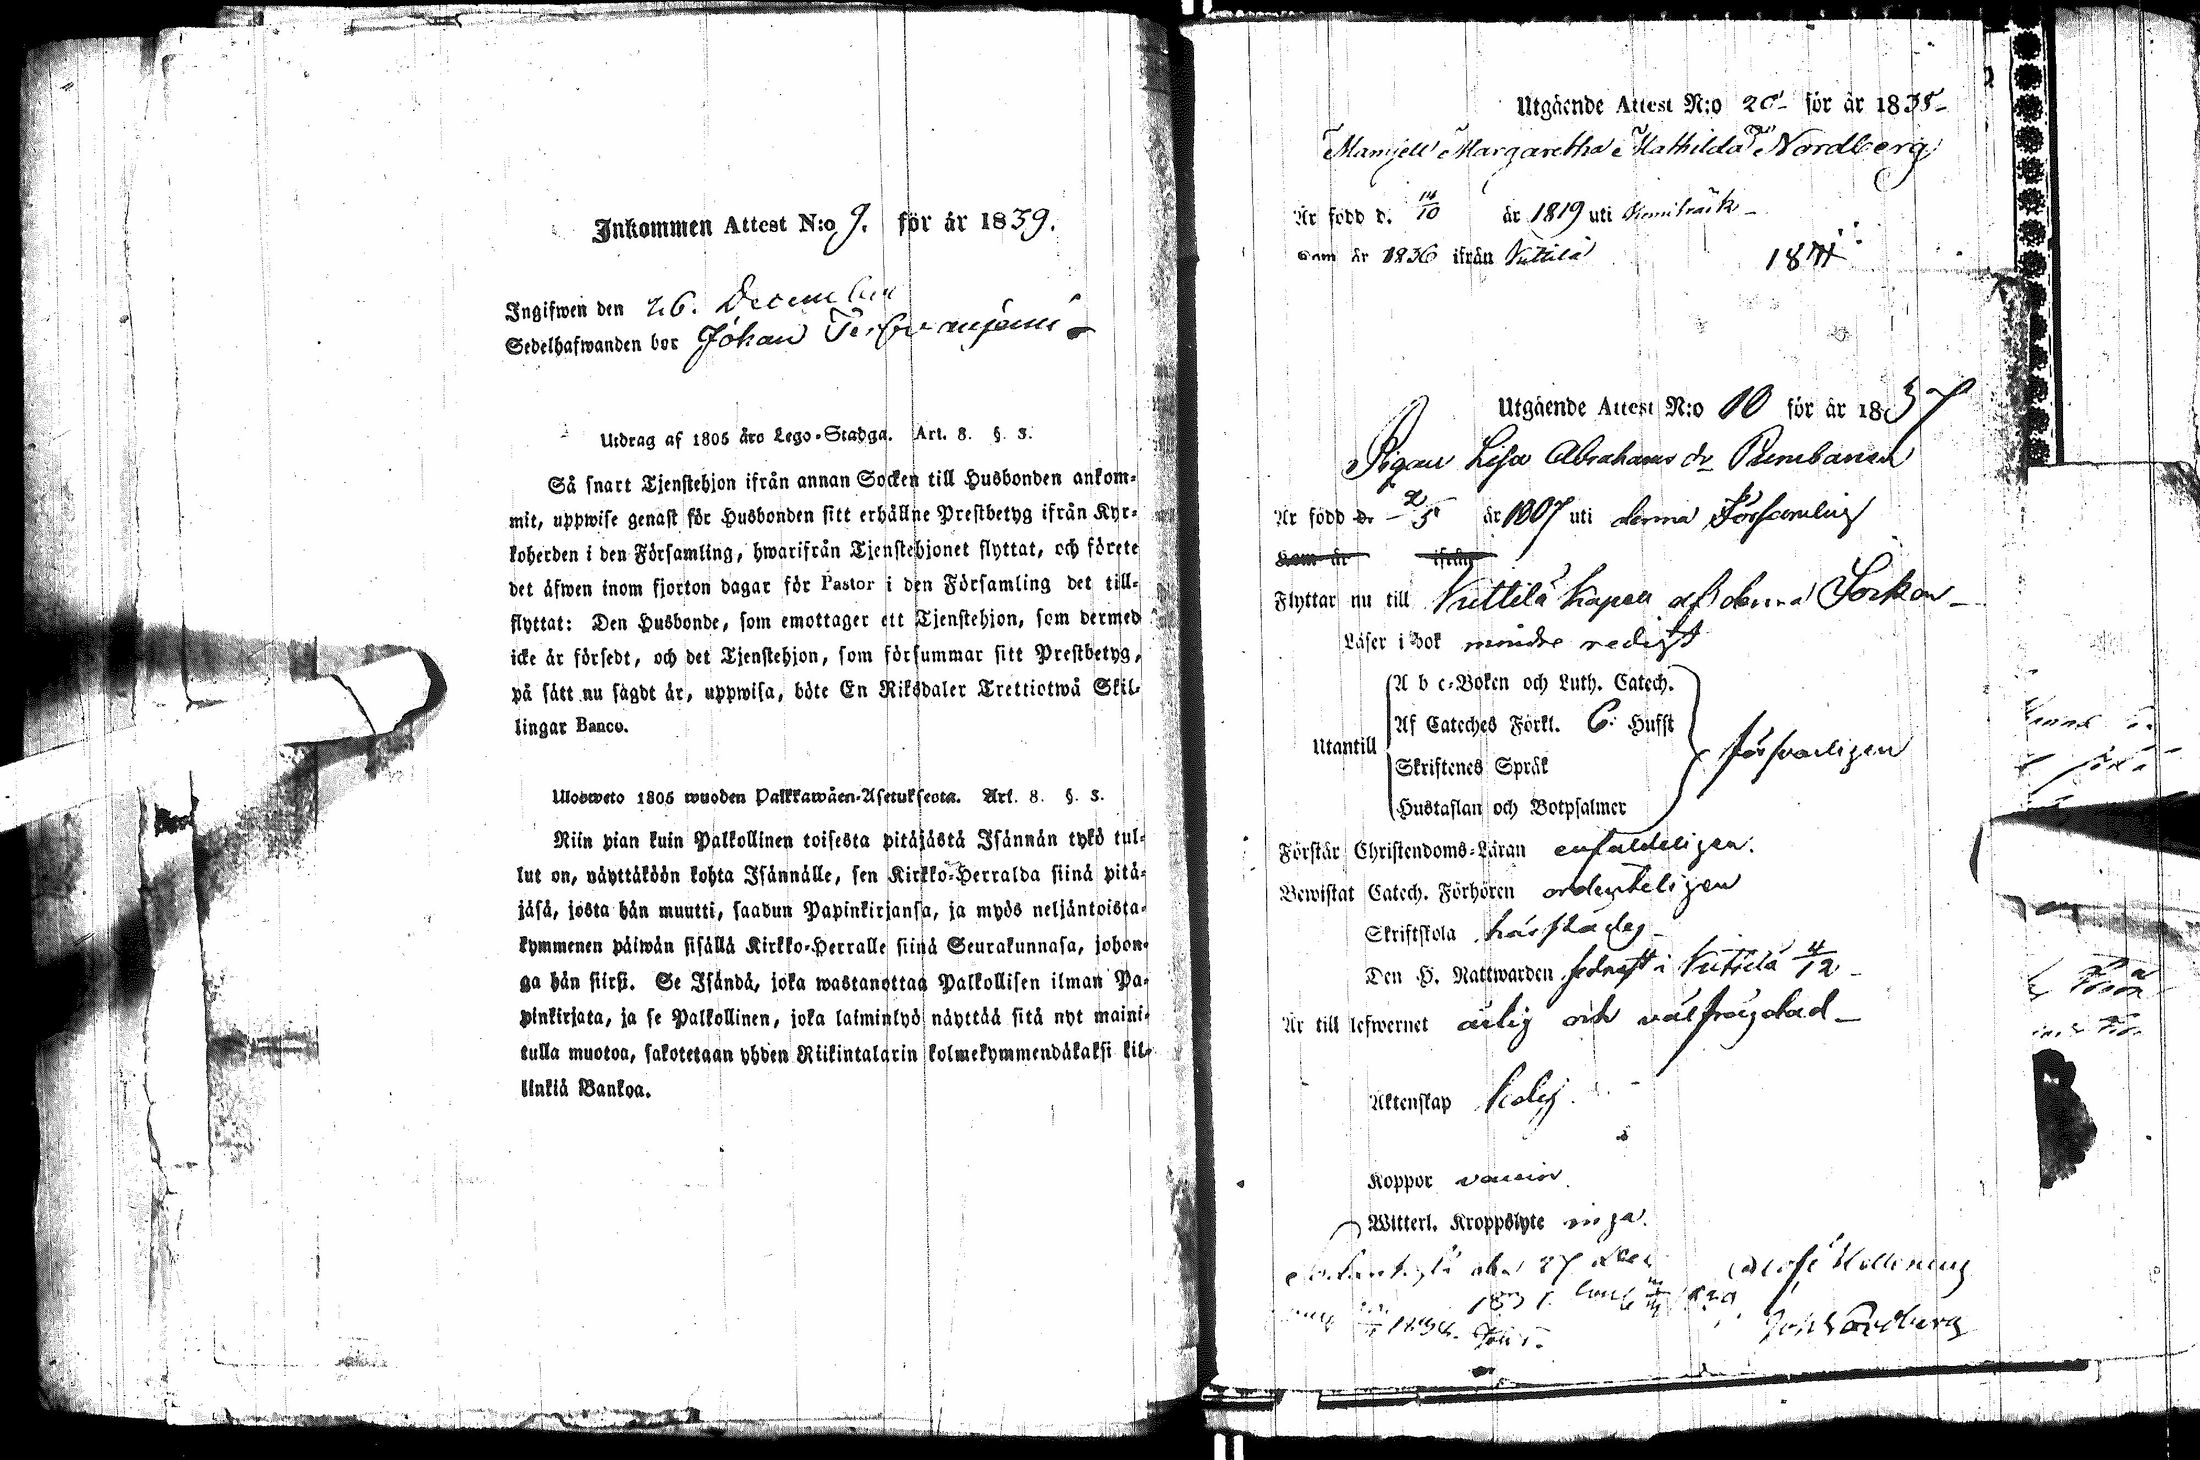 Inkommen Attest N:o 9. för år 1839.
Ingifwen den 26. December
Sedelhafwanden bor Johan
Utdrag af 1805 års Lego-Stadga. Art. 8. §. 3.
Så snart Tjenstehjon ifrån annan Socken till Husbonden ankom-
mit, uppwise genast för Husbonden sitt erhållne Prestbetyg ifrån Kyr-
koherden i den Församling, hwarifrån Tjenstehjonet flyttat, och förete
det äfwen inom fjorton dagar för Pastor i den Församling det till-
flyttat: Den Husbonde, som emottager ett Tjenstehjon, som dermed
icke är försedt, och det Tjenstehjon, som försummar sitt Prestbetyg,
på sätt nu sagdt är, uppwisa, böte En Riksdaler Trettiotwå Skil-
lingar Banco.
Ulosweto 1805 wuoden Palkkawäen-Asetuksesta. Art. 8. §. 3.
Niin pian kuin Palkollinen toisesta pitäjästä Isännän tykö tul-
lut on, näyttäköön kohta Isännälle, sen Kirkko-Herralda siinä pitä-
jäsä, josta hän muutti, saadun Papinkirjansa, ja myös neljäntoista-
kymmenen päiwän sisällä Kirkko-Herralle siinä Seurakunnasa, johon-
ga hän siirsi. Se Isändä, joka wastanottaa Palkollisen ilman Pa-
pinkirjata, ja se Palkollinen, joka laiminlyö näyttää sitä nyt maini-
tulla muotoa, sakotetaan yhden Riikintalarin kolmekymmendäkaksi kil-
linkiä Bankoa.
Utgående Attest N:o 20 för år 1838
Mamsell Margaretha Mathilda Nordberg
Är född d. 14/10 år 1819 uti Kemiträsk
Kom år 1836 ifrån Kittilä
Utgående Attest N:o 10 för år 1837
Pigan Lisa Abrahams dr
Är född d. 2/5 år 1807 uti denna Församling
Kom år ifrån
Flyttar nu till Kittilä Kapell af denna Socken
Läser i Bok mindre redigt
A b c-Boken och Luth. Catech.
Af Cateches Förkl. 6. Hufst
Utantill försvarligen
Skriftenes Språk
Hustaflan och Botpsalmer
Förstår Christendoms-Läran enfaldeligen.
Bewistat Catech. Förhören ordenteligen
Skriftskola härstädes
Den H. Nattwarden sednast i Kittilä 4/12
Är till lefwernet ärlig och välfrägdad
Äktenskap ledig.
Koppor vaccin.
Witterl. Kroppslyte inga.